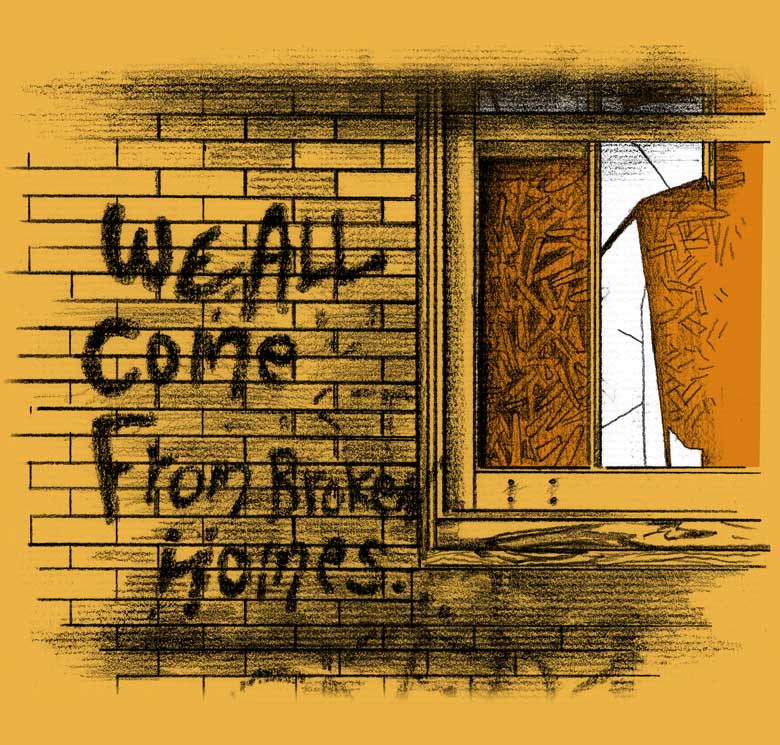 We All
Come
From Broken
Homes.